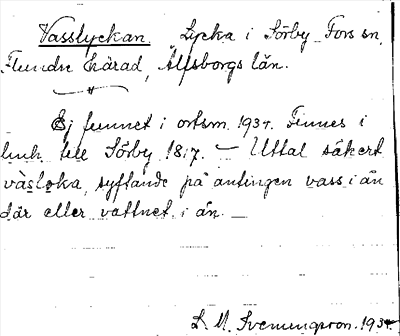 Vasslyckan. Lycka i Sörby Fors sn,
Flundre härad, Älfsborgs län.
Ej funnet i ortsm. 1934. Finnes i
till Sörby 1817. — Uttal säkert
vàsloka, syftande på antingen vass i ån
där eller vattnet i ån. —
L. M. Svenungsson. 1934